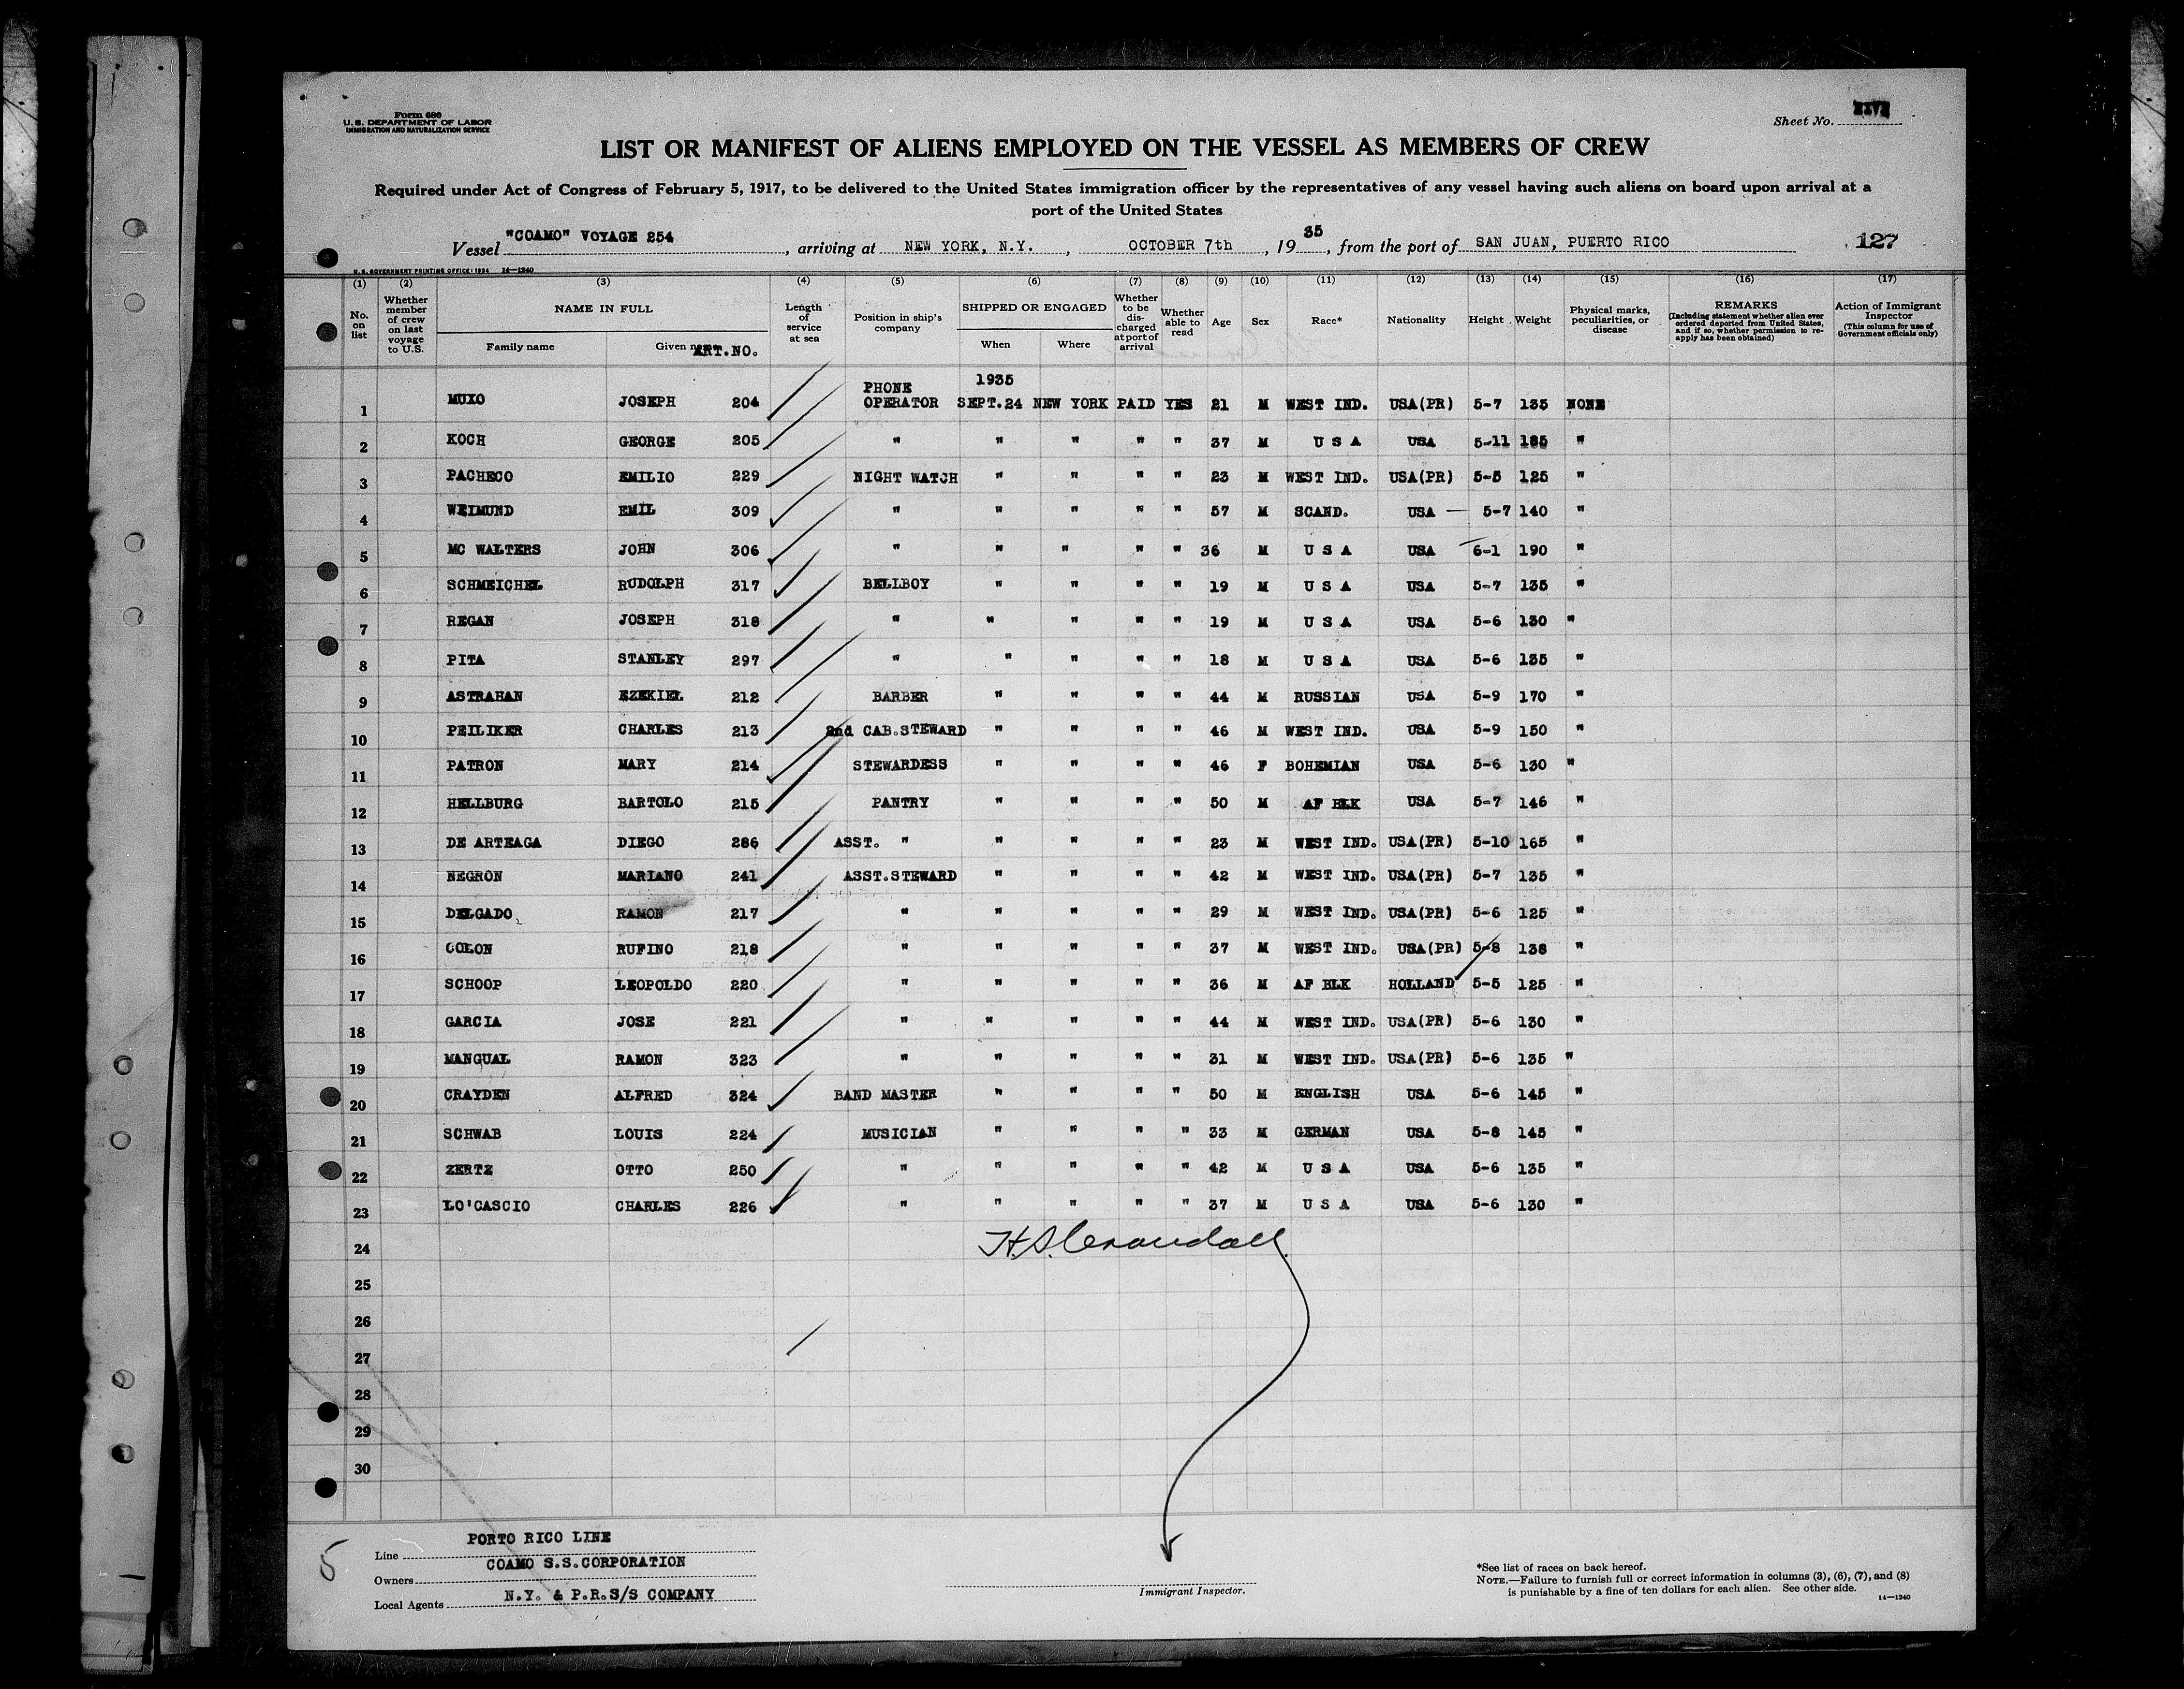 Form 680
U. S. DEPARTMENT OF LABOR
IMMIGRATION AND NATURALIZATION SERVICE
Sheet No.
LIST OR MANIFEST OF ALIENS EMPLOYED ON THE VESSEL AS MEMBERS OF CREW
Required under Act of Congress of February 5, 1917, to be delivered to the United States immigration officer by the representatives of any vessel having such aliens on board upon arrival at a
port of the United States
Vessel "COAMO" VOYAGE 254, arriving at NEW YORK, N.Y., OCTOBER 7th, 1935, from the port of SAN JUAN, PUERTO RICO 127
U. S. GOVERNMENT PRINTING OFFICE: 1934 14—1240
(1) (2) (3) (4) (5) (6) (7) (8) (9) (10) (11) (12) (13) (14) (15) (16) (17)
No. on list
Whether member of crew on last voyage to U.S.
NAME IN FULL
Family name
Given name
ART.NO.
Length of service at sea
Position in ship's company
SHIPPED OR ENGAGED
When
Where
Whether to be discharged at port of arrival
Whether able to read
Age
Sex
Race*
Nationality
Height
Weight
Physical marks, peculiarities, or disease
REMARKS
(Including statement whether alien ever ordered deported from United States, and if so, whether permission to reapply has been obtained)
Action of Immigrant Inspector
(This column for use of Government officials only)
1935
1 MUXO JOSEPH 204 PHONE OPERATOR SEPT.24 NEW YORK PAID YES 21 M WEST IND. USA(PR) 5-7 135 NONE
2 KOCH GEORGE 205 " " " " " 37 M U S A USA 5-11 185 "
3 PACHECO EMILIO 229 NIGHT WATCH " " " " 23 M WEST IND. USA(PR) 5-5 125 "
4 WEIMUND EMIL 309 " " " " " 57 M SCAND. USA — 5-7 140 "
5 MC WALTERS JOHN 306 " " " " " 36 M U S A USA 6-1 190 "
6 SCHMEICHEL RUDOLPH 317 BELLBOY " " " " 19 M U S A USA 5-7 135 "
7 REGAN JOSEPH 318 " " " " " 19 M U S A USA 5-6 130 "
8 PITA STANLEY 297 " " " " " 18 M U S A USA 5-6 135 "
9 ASTRAHAN EZEKIEL 212 BARBER " " " " 44 M RUSSIAN USA 5-9 170 "
10 PEILIKER CHARLES 213 2nd CAB.STEWARD " " " " 46 M WEST IND. USA 5-9 150 "
11 PATRON MARY 214 STEWARDESS " " " " 46 F BOHEMIAN USA 5-6 130 "
12 HELLBURG BARTOLO 215 PANTRY " " " " 50 M AF BLK USA 5-7 146 "
13 DE ARTEAGA DIEGO 286 ASST. " " " " " 23 M WEST IND. USA(PR) 5-10 165 "
14 NEGRON MARIANO 241 ASST.STEWARD " " " " 42 M WEST IND. USA(PR) 5-7 135 "
15 DELGADO RAMON 217 " " " " " 29 M WEST IND. USA(PR) 5-6 125 "
16 COLON RUFINO 218 " " " " " 37 M WEST IND. USA(PR) 5-8 138 "
17 SCHOOP LEOPOLDO 220 " " " " " 36 M AF BLK HOLLAND 5-5 125 "
18 GARCIA JOSE 221 " " " " " 44 M WEST IND. USA(PR) 5-6 130 "
19 MANGUAL RAMON 323 " " " " " 31 M WEST IND. USA(PR) 5-6 135 "
20 CRAYDEN ALFRED 324 BAND MASTER " " " " 50 M ENGLISH USA 5-6 145 "
21 SCHWAB LOUIS 224 MUSICIAN " " " " 33 M GERMAN USA 5-8 145 "
22 ZERTZ OTTO 250 " " " " " 42 M U S A USA 5-6 135 "
23 LO'CASCIO CHARLES 226 " " " " " 37 M U S A USA 5-6 130 "
24 H.S. Crandall
25
26
27
28
29
30
5
Line PORTO RICO LINE
Owners COAMO S.S.CORPORATION
Local Agents N.Y. & P.R.S/S COMPANY
Immigrant Inspector.
*See list of races on back hereof.
NOTE.—Failure to furnish full or correct information in columns (3), (6), (7), and (8)
is punishable by a fine of ten dollars for each alien. See other side.
14—1240